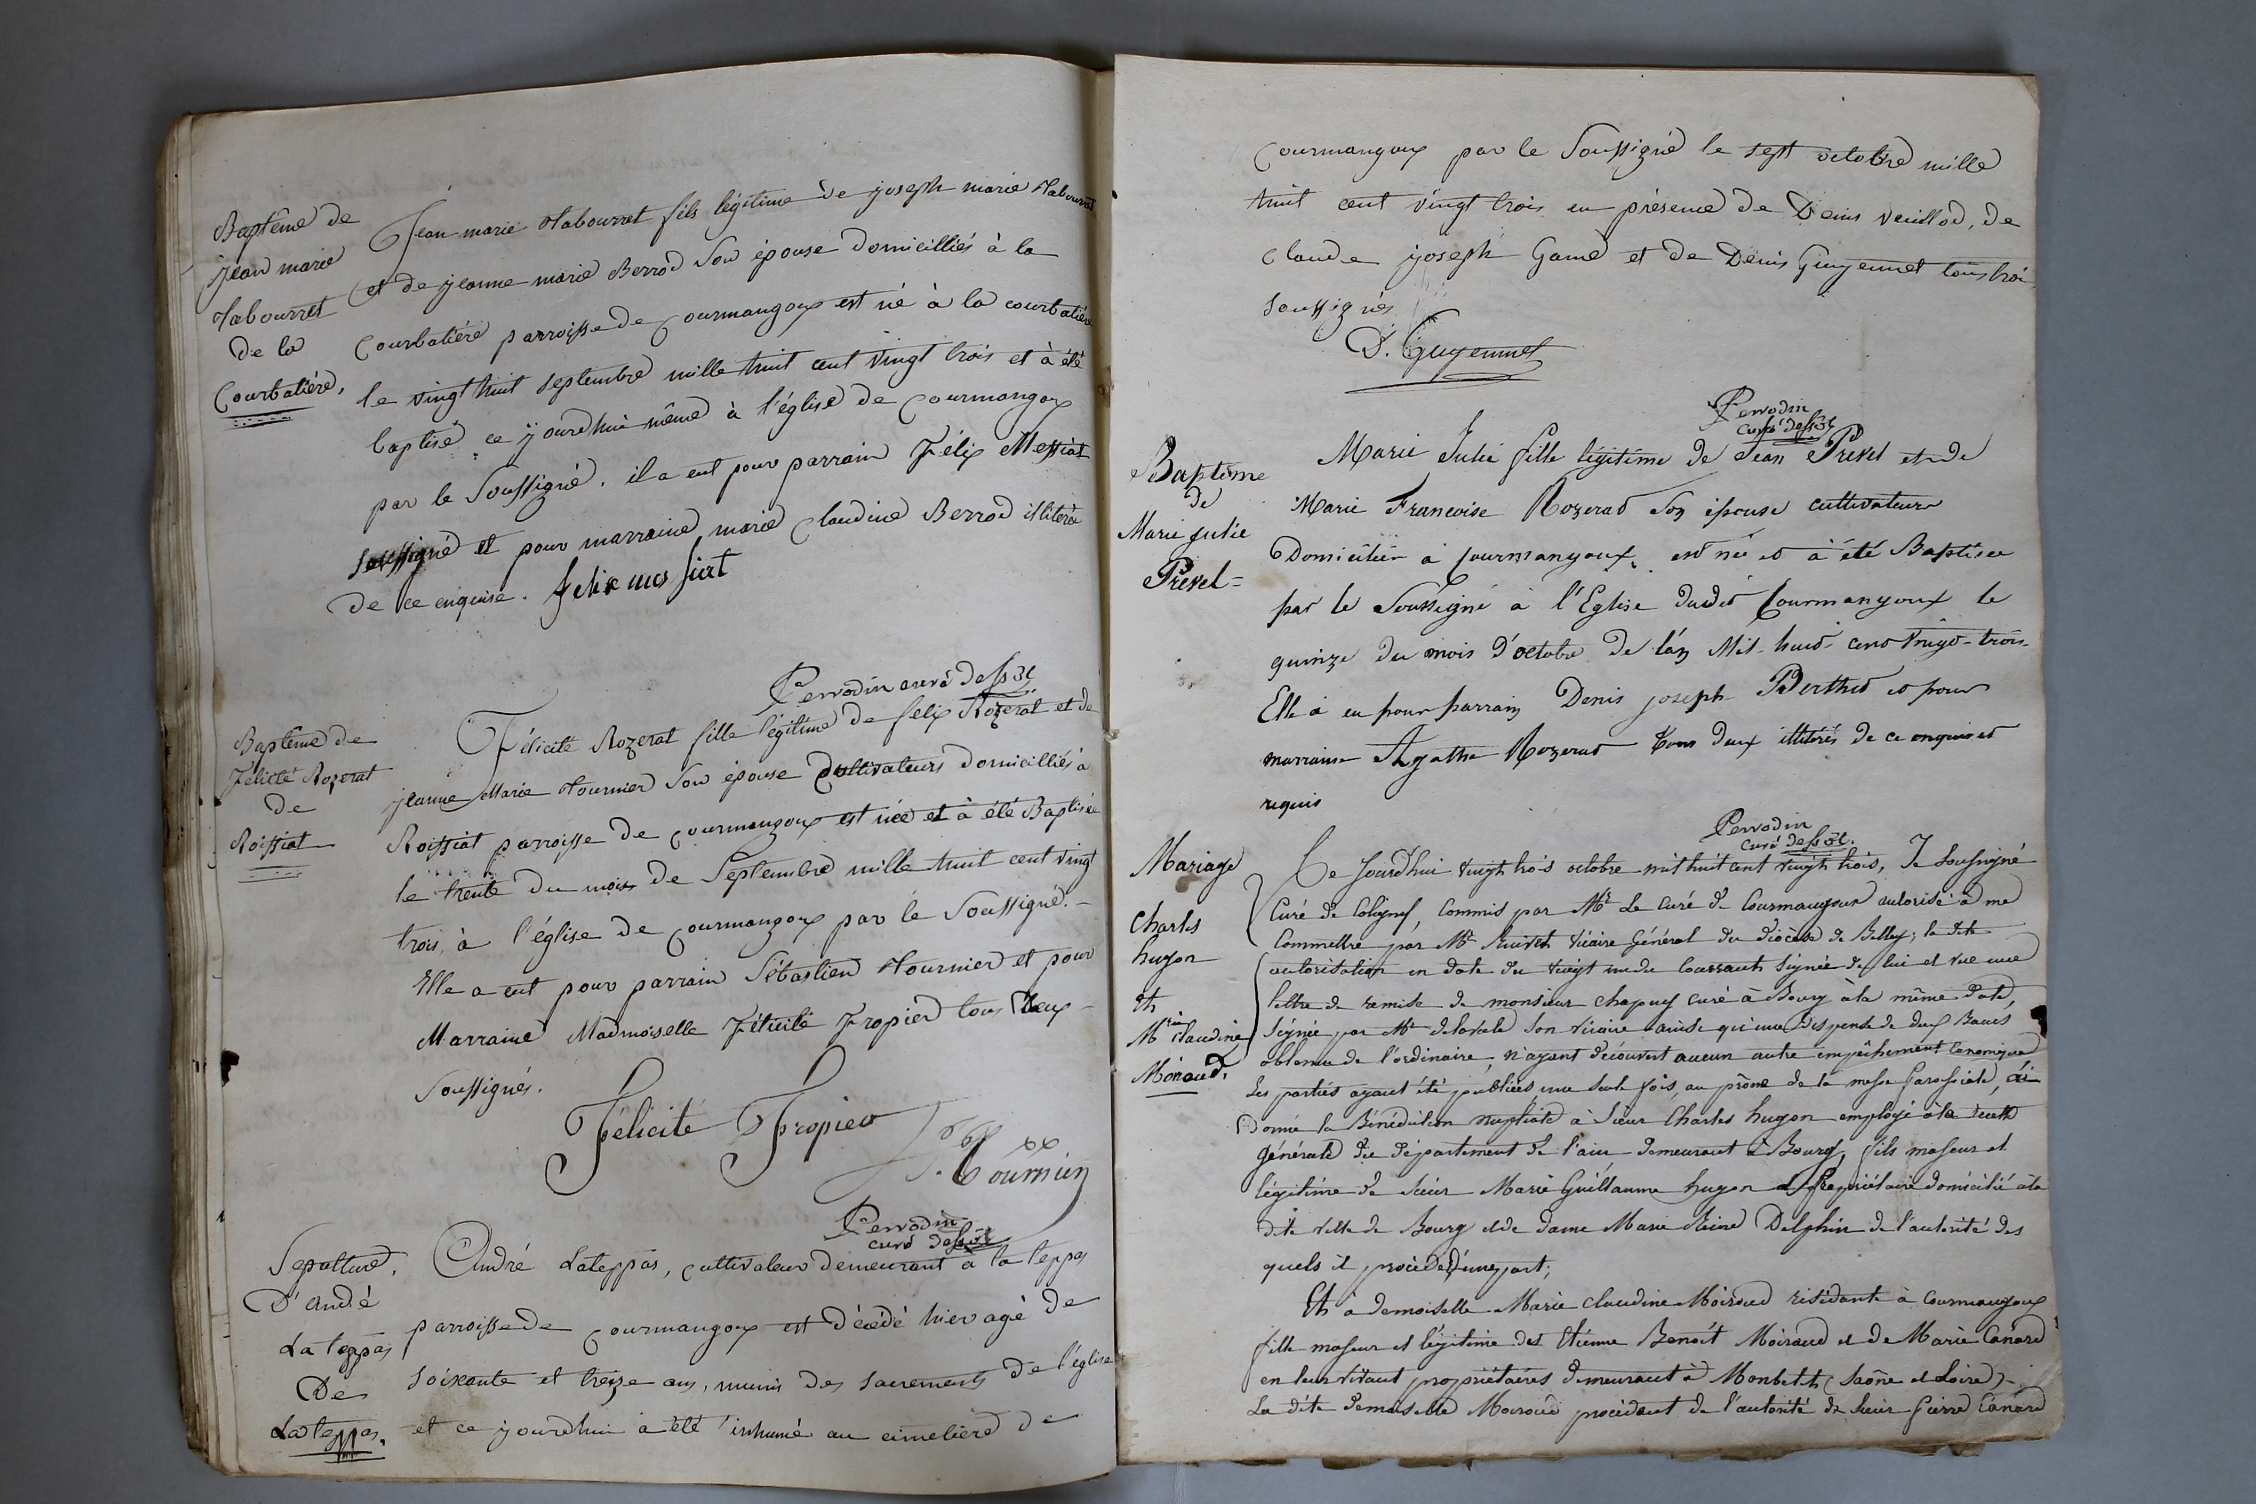 Baptême de
jean marie
Tabourret
de la
Courbatiére,
Jean marie Tabourret fils légitime de joseph marie Tabourret
et de jeanne marie Berrod Son épouse domicilliés à la
Courbatiére parroisse de Courmangoux est né à la courbatiére
le vingt huit septembre mille huit cent vingt trois et à été
baptisé ce jourdhui même à l'église de Courmangoux
par le Soussigné. il a eut pour parrain Félix Messiat
soussigné et pour marraine marie Claudine Berrod illiterée
de ce enquise. felix messiat
Perrodin curé dessvt
Baptême de
Felicité Rozerat
de
Roissiat
Félicité Rozerat fille légitime de felix Rozerat et de
jeanne Marie Tournier Son épouse Cultivateurs domicilliés à
Roissiat parroisse de Courmangoux est née et à été Baptisée
le trente du mois de Septembre mille huit cent vingt
trois, à l'église de Courmangoux par le Soussigné.
Elle a eut pour parrain Sébastien Tournier et pour
Marraine Madmoiselle Félicité Fropier tous deux
Soussignés.
Félicité Fropier
S. Tournier
Perrodin
curé dessvt
Sepulture
D'André
La teppas
De
La teppas.
André Lateppas, cultivateur demeurant à la teppas
parroisse de Courmangoux est décédé hier agé de
soixante et treize ans, munis des sacrements de l'église
et ce jourdhui a été inhumé au cimetière de
Courmangoux par le Soussigné le sept octobre mille
huit cent vingt trois en présence de Denis veuillod, de
Claude joseph Game et de Denis Guyennet tous trois
soussignés
D. Guyennet
Perrodin
curé dessvt
Baptême
de
Marie Julie
Prevel =
Marie Julie fille légitime de Jean Prevel et de
Marie Francoise Rozerat Son épouse cultivateurs
Domiciliés à Courmangoux, est née et à été Baptisée
par le Soussigné à l'Eglise dudit Courmangoux le
quinze du mois d'octobre de l'an Mil-huit-cent vingt-trois
Elle à eu pour parrain Denis joseph Berthet et pour
marraine Agathe Rozerat tous deux illiterés de ce enquis et
requis
Perrodin
curé dessvt.
Mariage
Charles
hugon
et
Mie Claudine
Moiroud.
Ce Jourdhui vingt trois octobre mil huit cent vingt trois, Je Soussigné
Curé de Coligny, Commis par Mr Le Curé de Courmangoux autorisé à me
Commettre par Mr Ruivet vicaire Général du diocèse de Belley; la dite
autorisation en date du vingt un du courrant signée de lui et vue une
lettre de remise de monsieur chapuy curé à Bourg à la même date,
signée par Mr delarale son vicaire ainsi qu'une dispense de deux Bancs
obtenue de l'ordinaire, n'ayant découvert aucun autre empêchement Canonique
Les parties ayant été publiées une seule fois, au prône de la messe Paroissiale, ai
donné la Bénédiction nuptiale à Sieur Charles hugon employé à la recette
générale du département de l'ain demeurant à Bourg, fils majeur et
légitime de sieur Marie Guillaume hugon Propriétaire domicilié à la
dite ville de Bourg et de dame Marie Reine Delphin de l'autorité des
quels il procède d'une part;
Et à demoiselle Marie claudine Moiroud résidante à Courmangoux
fille majeur et légitime des Etienne Benoît Moiroud et de Marie Canard
en leur vivant propriétaires demeurant à Monbelet (Saône et Loire)
La dite demoiselle Moiroud procédant de l'autorité de sieur Pierre Canard